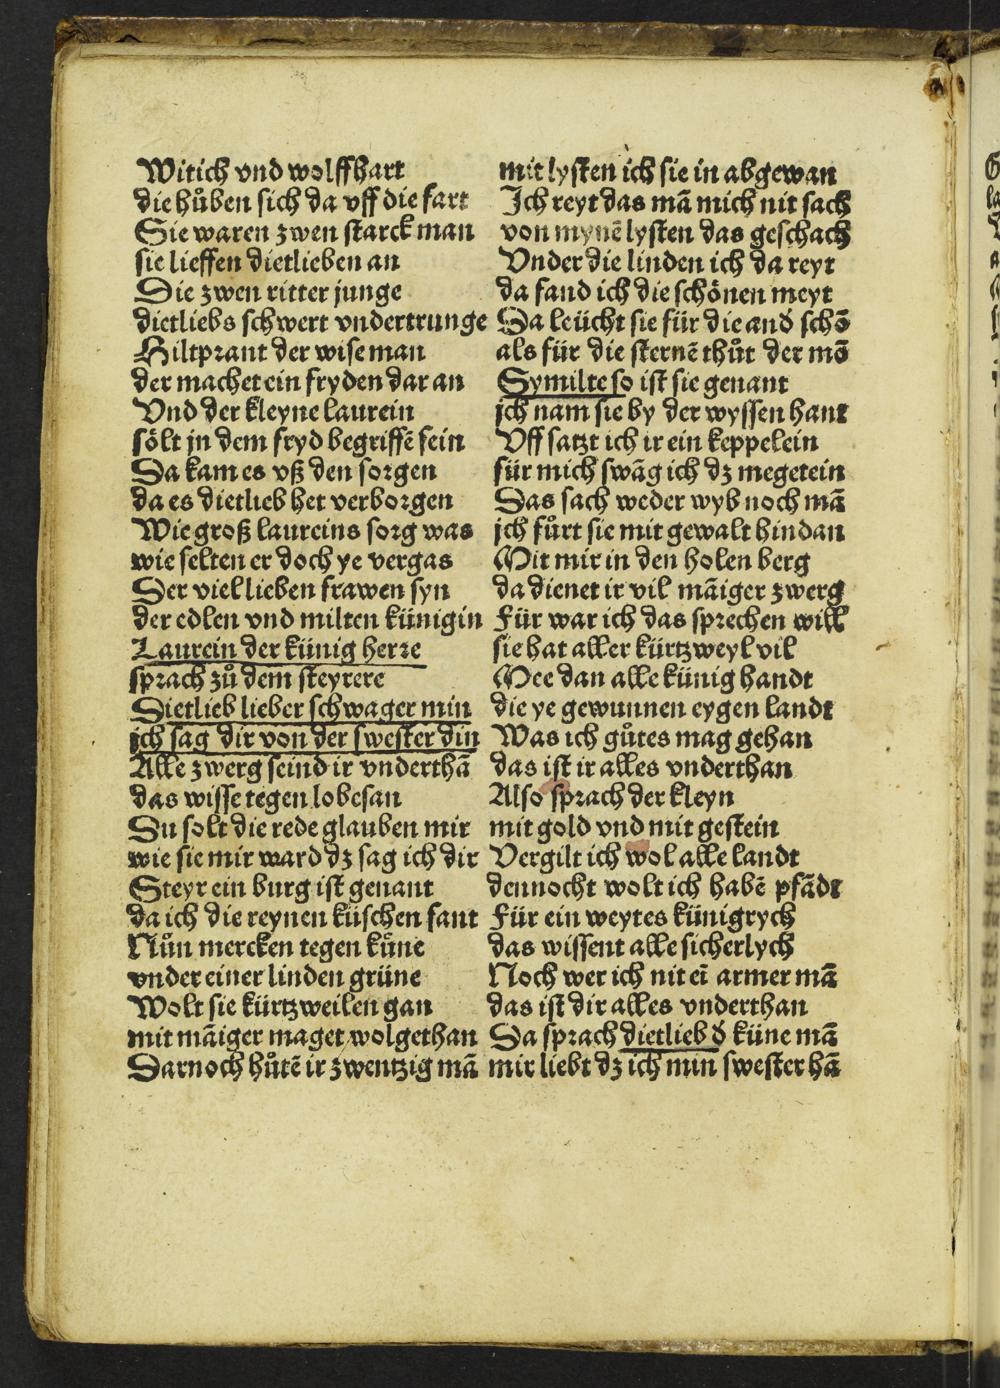 Witich vnd wolffhart
die hůben sich da vff die fart
Sie waren zwen starck man
sie lieffen dietlieben an
Die zwen ritter junge
dietliebs schwert vndertrunge
Hiltprant der wise man
der machet ein fryden dar an
Vnd der kleyne laurein
sölt jn dem fryd begriffē sein
Da kam es vß den sorgen
da es dietlieb het verborgen
Wie groß laureins sorg was
wie selten er doch ye vergas
Der viel lieben frawen syn
der edlen vnd milten künigin
Laurein der künig herre
sprach zů dem steyrere
Dietlieb lieber schwager min
ich sag dir von der swester din
Alle zwerg seind ir vnderthā
das wisse tegen lobesan
Du solt die rede glauben mir
wie sie mir ward dz sag ich dir
Steyr ein burg ist genant
da ich die reynen küschen fant
Nůn mercken tegen kůne
vnder einer linden grüne
Wolt sie kürtzweilen gan
mit māiger maget wolgethan
Darnoch hůtē ir zwentzig mā
mit lysten ich sie in abgewan
Ich reyt das mā mich nit sach
von mynē lysten das geschach
Vnder die linden ich da reyt
da fand ich die schönen meyt
Da leücht sie für die and̄ schō
als für die sternē thůt der mō
Symilte so ist sie genant
ich nam sie by der wyssen hant
Vff satzt ich ir ein keppelein
für mich swāg ich dz megetein
Das sach weder wyb noch mā
ich fůrt sie mit gewalt hindan
Mit mir in den holen berg
da dienet ir vil māiger zwerg
Für war ich das sprechen will
sie hat aller kürtzweyl vil
Mee dan alle künig handt
die ye gewunnen eygen landt
Was ich gůtes mag gehan
das ist ir alles vnderthan
Also sprach der kleyn
mit gold vnd mit gestein
Vergilt ich wol alle landt
dennocht wolt ich habē pfādt
Für ein weytes künigrych
das wissent alle sicherlych
Noch wer ich nit eī armer mā
das ist dir alles vnderthan
Da sprach dietlieb d̄ küne mā
mir liebt dz ich min swester hā